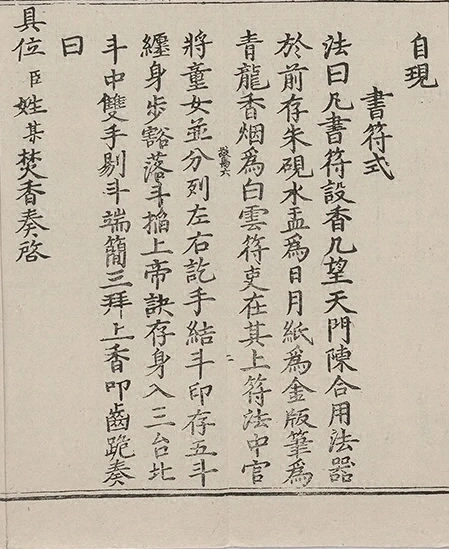 自現
書符式
法曰凡書符設香几望天門陳合用法器
於前存朱硯水盂為日月紙為金版筆為
青龍香烟為白雲符吏在其上符法中官
將童女並分列左右訖手結斗印存五斗
纏身步豁落斗搯上帝訣存身入三台北
斗中雙手剔斗端簡三拜上香叩齒跪奏
曰
具位臣姓某焚香奏啓